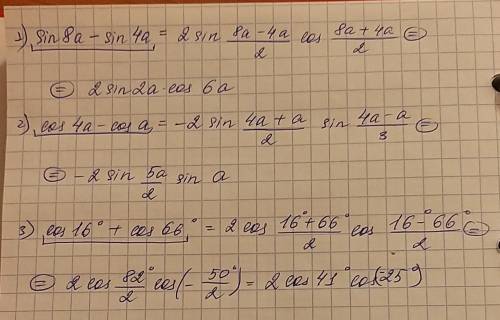 1) sin 8a − sin 4a = 2 sin (8a − 4a)/2 cos (8a + 4a)/2 ⊜
⊜ 2 sin 2a · cos 6a
2) cos 4a − cos a = −2 sin (4a + a)/2 sin (4a − a)/3 ⊜
⊜ −2 sin 5a/2 sin a
3) cos 16° + cos 66° = 2 cos (16° + 66°)/2 cos (16° − 66°)/2 ⊜
⊜ 2 cos 82°/2 cos(−50°/2) = 2 cos 41° cos(−25°)